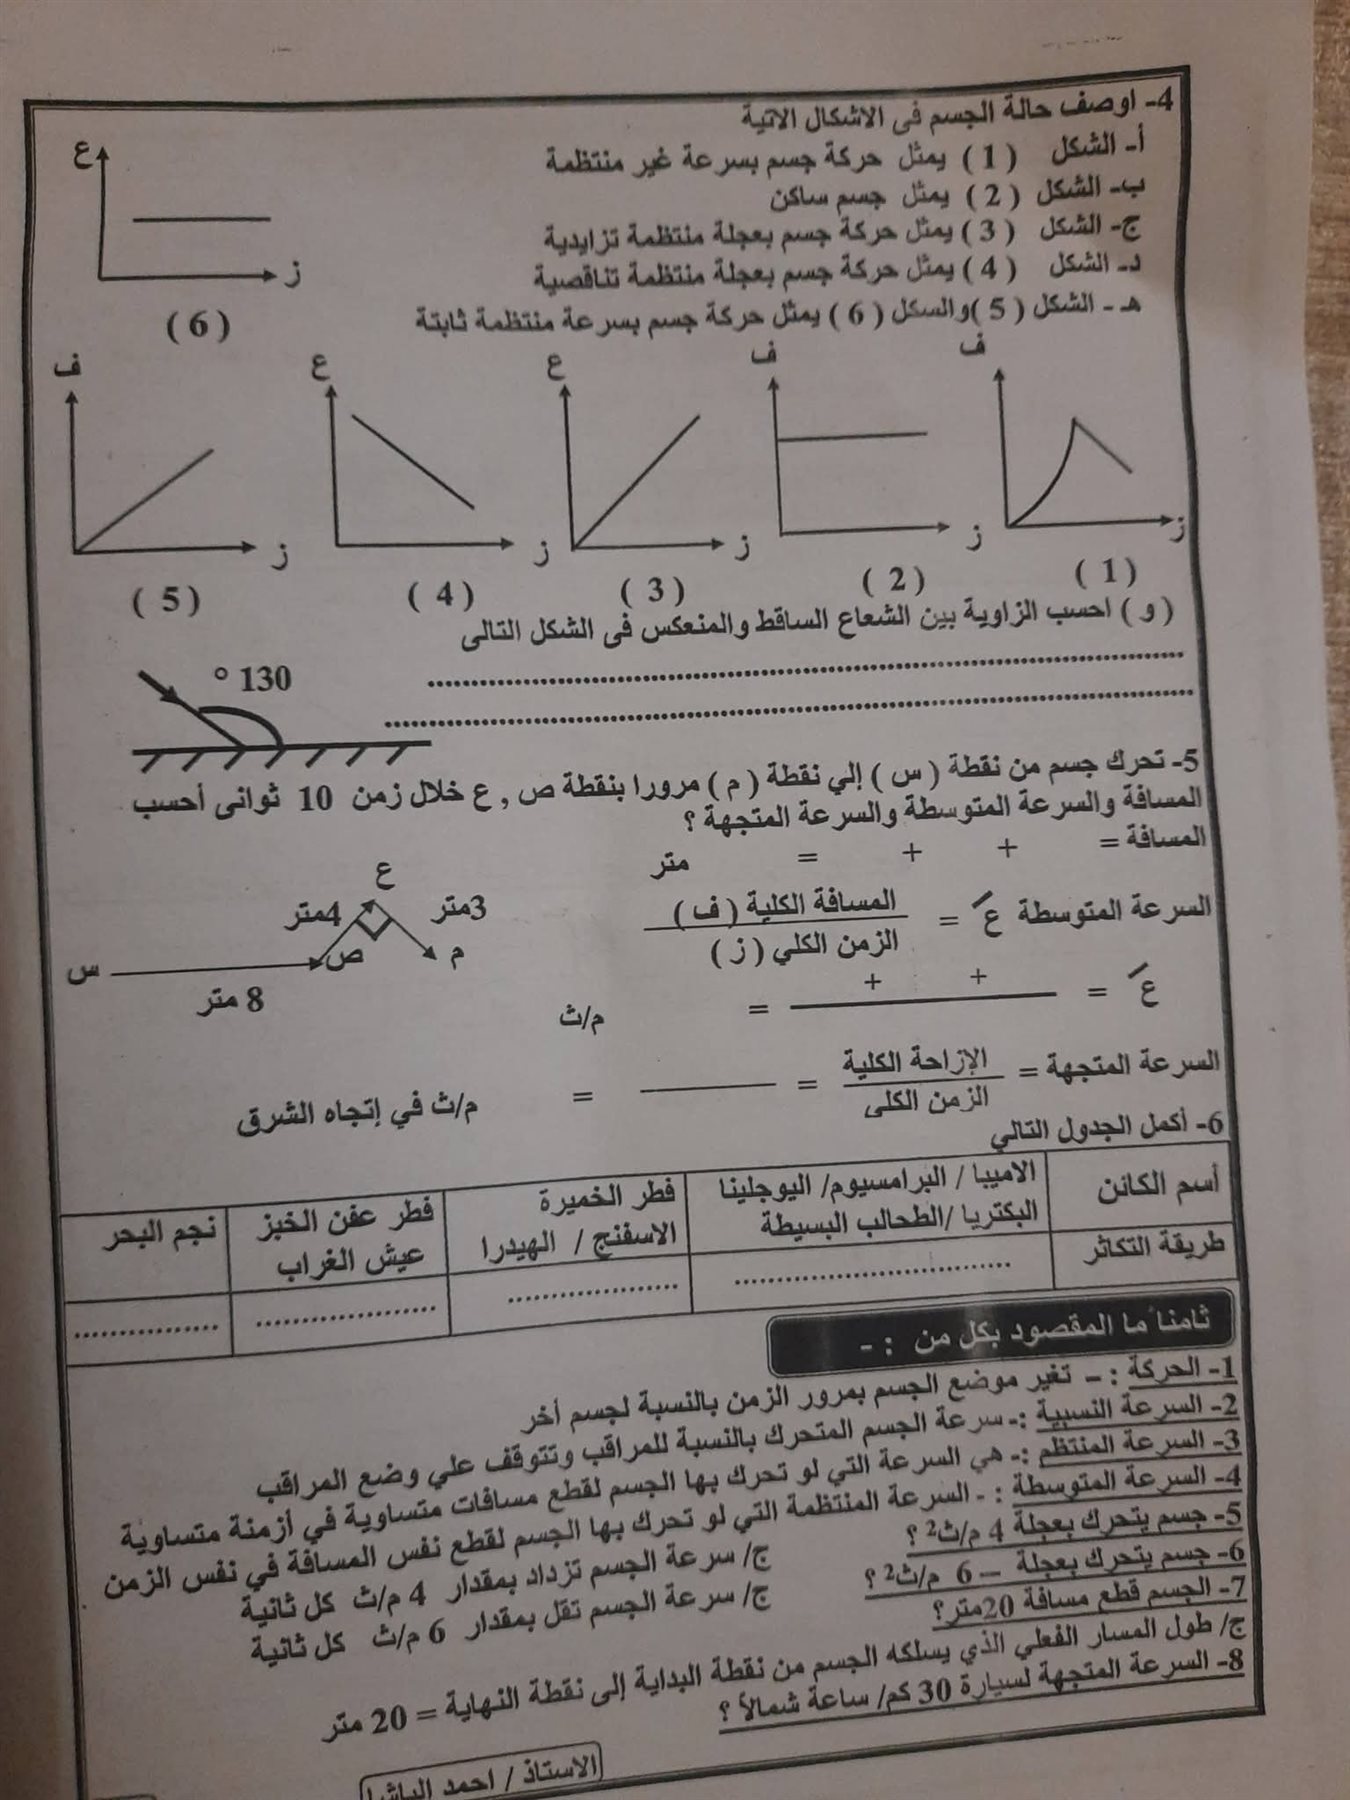 4- اوصف حالة الجسم فى الاشكال الاتية
أ- الشكل ( 1 ) يمثل حركة جسم بسرعة غير منتظمة
ب- الشكل ( 2 ) يمثل جسم ساكن
ج- الشكل ( 3 ) يمثل حركة جسم بعجلة منتظمة تزايدية
د- الشكل ( 4 ) يمثل حركة جسم بعجلة منتظمة تناقصية
هـ - الشكل ( 5 )والسكل ( 6 ) يمثل حركة جسم بسرعة منتظمة ثابتة
ع
ز
( 6 )
ف
ز
( 1 )
ف
ز
( 2 )
ع
ز
( 3 )
ع
ز
( 4 )
ف
ز
( 5 )
( و ) احسب الزاوية بين الشعاع الساقط والمنعكس فى الشكل التالى
130 °
5- تحرك جسم من نقطة ( س ) إلي نقطة ( م ) مرورا بنقطة ص , ع خلال زمن 10 ثوانى أحسب
المسافة والسرعة المتوسطة والسرعة المتجهة ؟
المسافة = + + = متر
السرعة المتوسطة عَ = المسافة الكلية ( ف )
الزمن الكلي ( ز )
عَ = + + = م/ث
ع
4متر
3متر
س
ص
م
8 متر
السرعة المتجهة = الإزاحة الكلية = = م/ث في إتجاه الشرق
الزمن الكلى
6- أكمل الجدول التالي
أسم الكائن
الاميبا / البرامسيوم/ اليوجلينا
البكتريا /الطحالب البسيطة
فطر الخميرة
الاسفنج / الهيدرا
فطر عفن الخبز
عيش الغراب
نجم البحر
طريقة التكاثر
ثامناً ما المقصود بكل من : -
1- الحركة : – تغير موضع الجسم بمرور الزمن بالنسبة لجسم أخر
2- السرعة النسبية :- سرعة الجسم المتحرك بالنسبة للمراقب وتتوقف علي وضع المراقب
3- السرعة المنتظم :- هي السرعة التي لو تحرك بها الجسم لقطع مسافات متساوية في أزمنة متساوية
4- السرعة المتوسطة : - السرعة المنتظمة التي لو تحرك بها الجسم لقطع نفس المسافة في نفس الزمن
5- جسم يتحرك بعجلة 4 م/ث2 ؟ ج/ سرعة الجسم تزداد بمقدار 4 م/ث كل ثانية
6- جسم يتحرك بعجلة – 6 م/ث2 ؟ ج/ سرعة الجسم تقل بمقدار 6 م/ث كل ثانية
7- الجسم قطع مسافة 20متر؟
ج/ طول المسار الفعلي الذي يسلكه الجسم من نقطة البداية إلى نقطة النهاية = 20 متر
8- السرعة المتجهة لسيارة 30 كم/ ساعة شمالاً ؟
الاستاذ / احمد الباشا